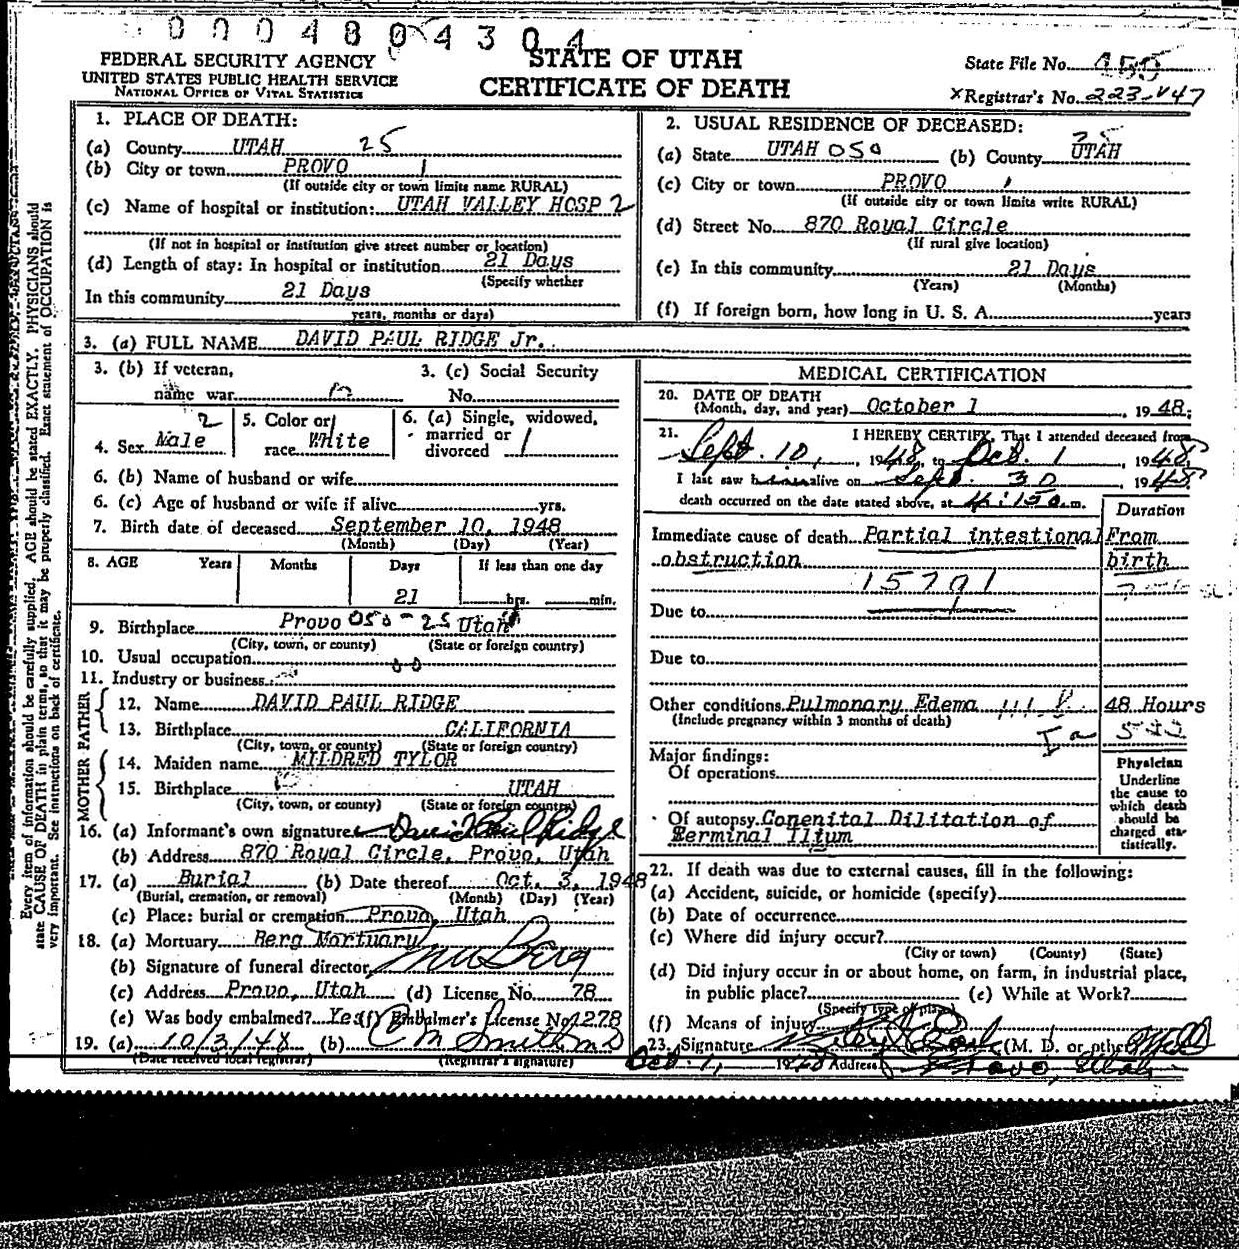 0004804304
FEDERAL SECURITY AGENCY
UNITED STATES PUBLIC HEALTH SERVICE
NATIONAL OFFICE OF VITAL STATISTICS
STATE OF UTAH
CERTIFICATE OF DEATH
State File No.
Registrar's No. 223-V47
Every item of information should be carefully supplied. AGE should be stated EXACTLY. PHYSICIANS should
state CAUSE OF DEATH in plain terms, so that it may be properly classified. Exact statement of OCCUPATION is
very important. See instructions on back of certificate.
1. PLACE OF DEATH:
(a) County UTAH 25
(b) City or town PROVO 1
(If outside city or town limits name RURAL)
(c) Name of hospital or institution: UTAH VALLEY HOSP 2
(If not in hospital or institution give street number or location)
(d) Length of stay: In hospital or institution 21 Days
(Specify whether
In this community 21 Days
years, months or days)
2. USUAL RESIDENCE OF DECEASED:
(a) State UTAH 050 (b) County UTAH 25
(c) City or town PROVO 1
(If outside city or town limits write RURAL)
(d) Street No. 870 Royal Circle
(If rural give location)
(e) In this community 21 Days
(Years) (Months)
(f) If foreign born, how long in U. S. A. years
3. (a) FULL NAME DAVID PAUL RIDGE Jr.
3. (b) If veteran,
name war
3. (c) Social Security
No.
4. Sex Male 2
5. Color or
race White
6. (a) Single, widowed,
married or
divorced 1
6. (b) Name of husband or wife
6. (c) Age of husband or wife if alive yrs.
7. Birth date of deceased September 10, 1948
(Month) (Day) (Year)
8. AGE Years Months Days If less than one day
21 hrs. min.
9. Birthplace Provo 050-25 Utah
(City, town, or county) (State or foreign country)
10. Usual occupation
11. Industry or business
FATHER
12. Name DAVID PAUL RIDGE
13. Birthplace CALIFORNIA
(City, town, or county) (State or foreign country)
MOTHER
14. Maiden name MILDRED TYLOR
15. Birthplace UTAH
(City, town, or county) (State or foreign country)
16. (a) Informant's own signature David Paul Ridge
(b) Address 870 Royal Circle, Provo, Utah
17. (a) Burial (b) Date thereof Oct. 3, 1948
(Burial, cremation, or removal) (Month) (Day) (Year)
(c) Place: burial or cremation Provo, Utah
18. (a) Mortuary Berg Mortuary
(b) Signature of funeral director Berg
(c) Address Provo, Utah (d) License No. 78
(e) Was body embalmed? Yes (f) Embalmer's License No. 1278
19. (a) 10/3/48 (b) C M Smith MD
(Date received local registrar) (Registrar's signature)
MEDICAL CERTIFICATION
20. DATE OF DEATH
(Month, day, and year) October 1, 1948;
21. I HEREBY CERTIFY, That I attended deceased from
Sept. 10, 1948, to Oct. 1, 1948,
I last saw h alive on Sept. 30, 1948
death occurred on the date stated above, at 4:15 a.m.
Duration
Immediate cause of death Partial intestional From
obstruction birth
15791
Due to
Due to
Other conditions Pulmonary Edema 48 Hours
(Include pregnancy within 3 months of death)
Ia
Major findings:
Of operations
Of autopsy Conenital Dilitation of
Terminal Ilium
Physician
Underline
the cause to
which death
should be
charged sta-
tistically.
22. If death was due to external causes, fill in the following:
(a) Accident, suicide, or homicide (specify)
(b) Date of occurrence
(c) Where did injury occur?
(City or town) (County) (State)
(d) Did injury occur in or about home, on farm, in industrial place,
in public place? (e) While at Work?
(Specify type of place)
(f) Means of injury
23. Signature (M. D. or other)
Oct. 1, 1948 Address Provo, Utah